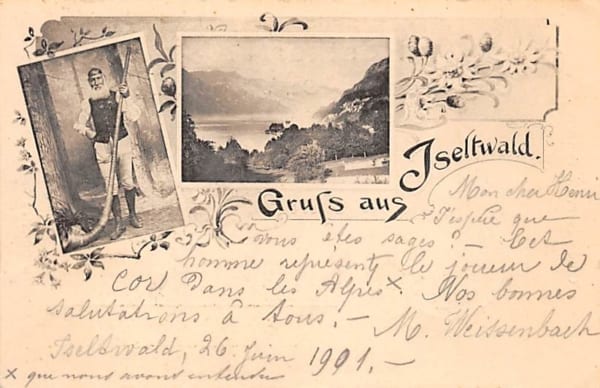 Gruss aus
Iseltwald.
Mon cher Henri
J'espère que
vous êtes sages? - Cet
homme represente le joueur de
cor dans les Alpes x. Nos bonnes
salutations à tous. -
M. Weissenbach
Iseltwald, 26 Juin 1901. -
x que nous avons entendu